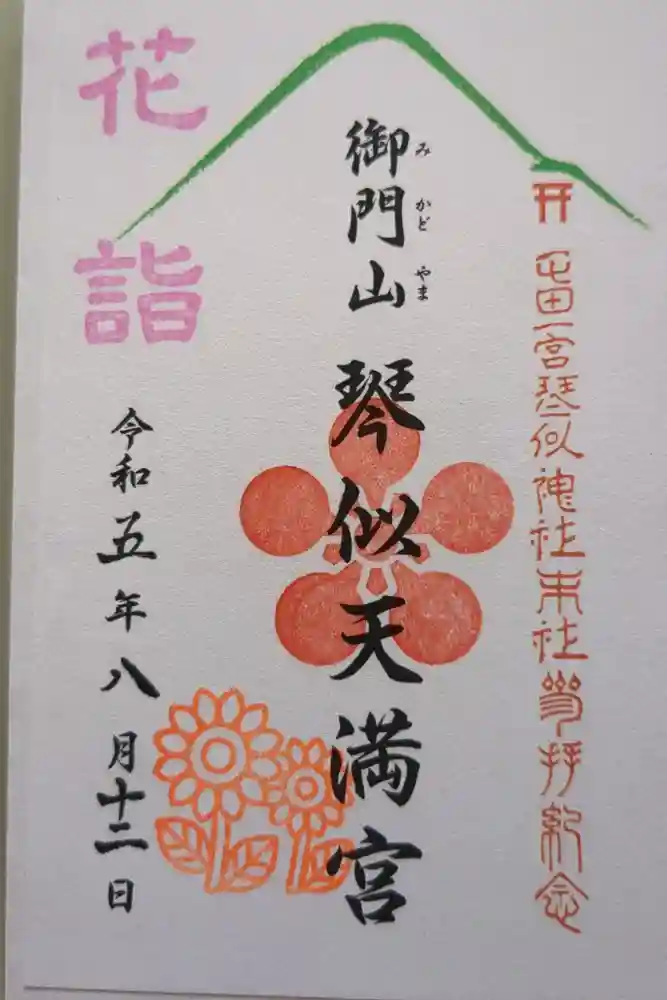 屯田一宮琴似神社末社参拝紀念
御門山 琴似天満宮
み かど やま
花詣
令和五年八月十二日